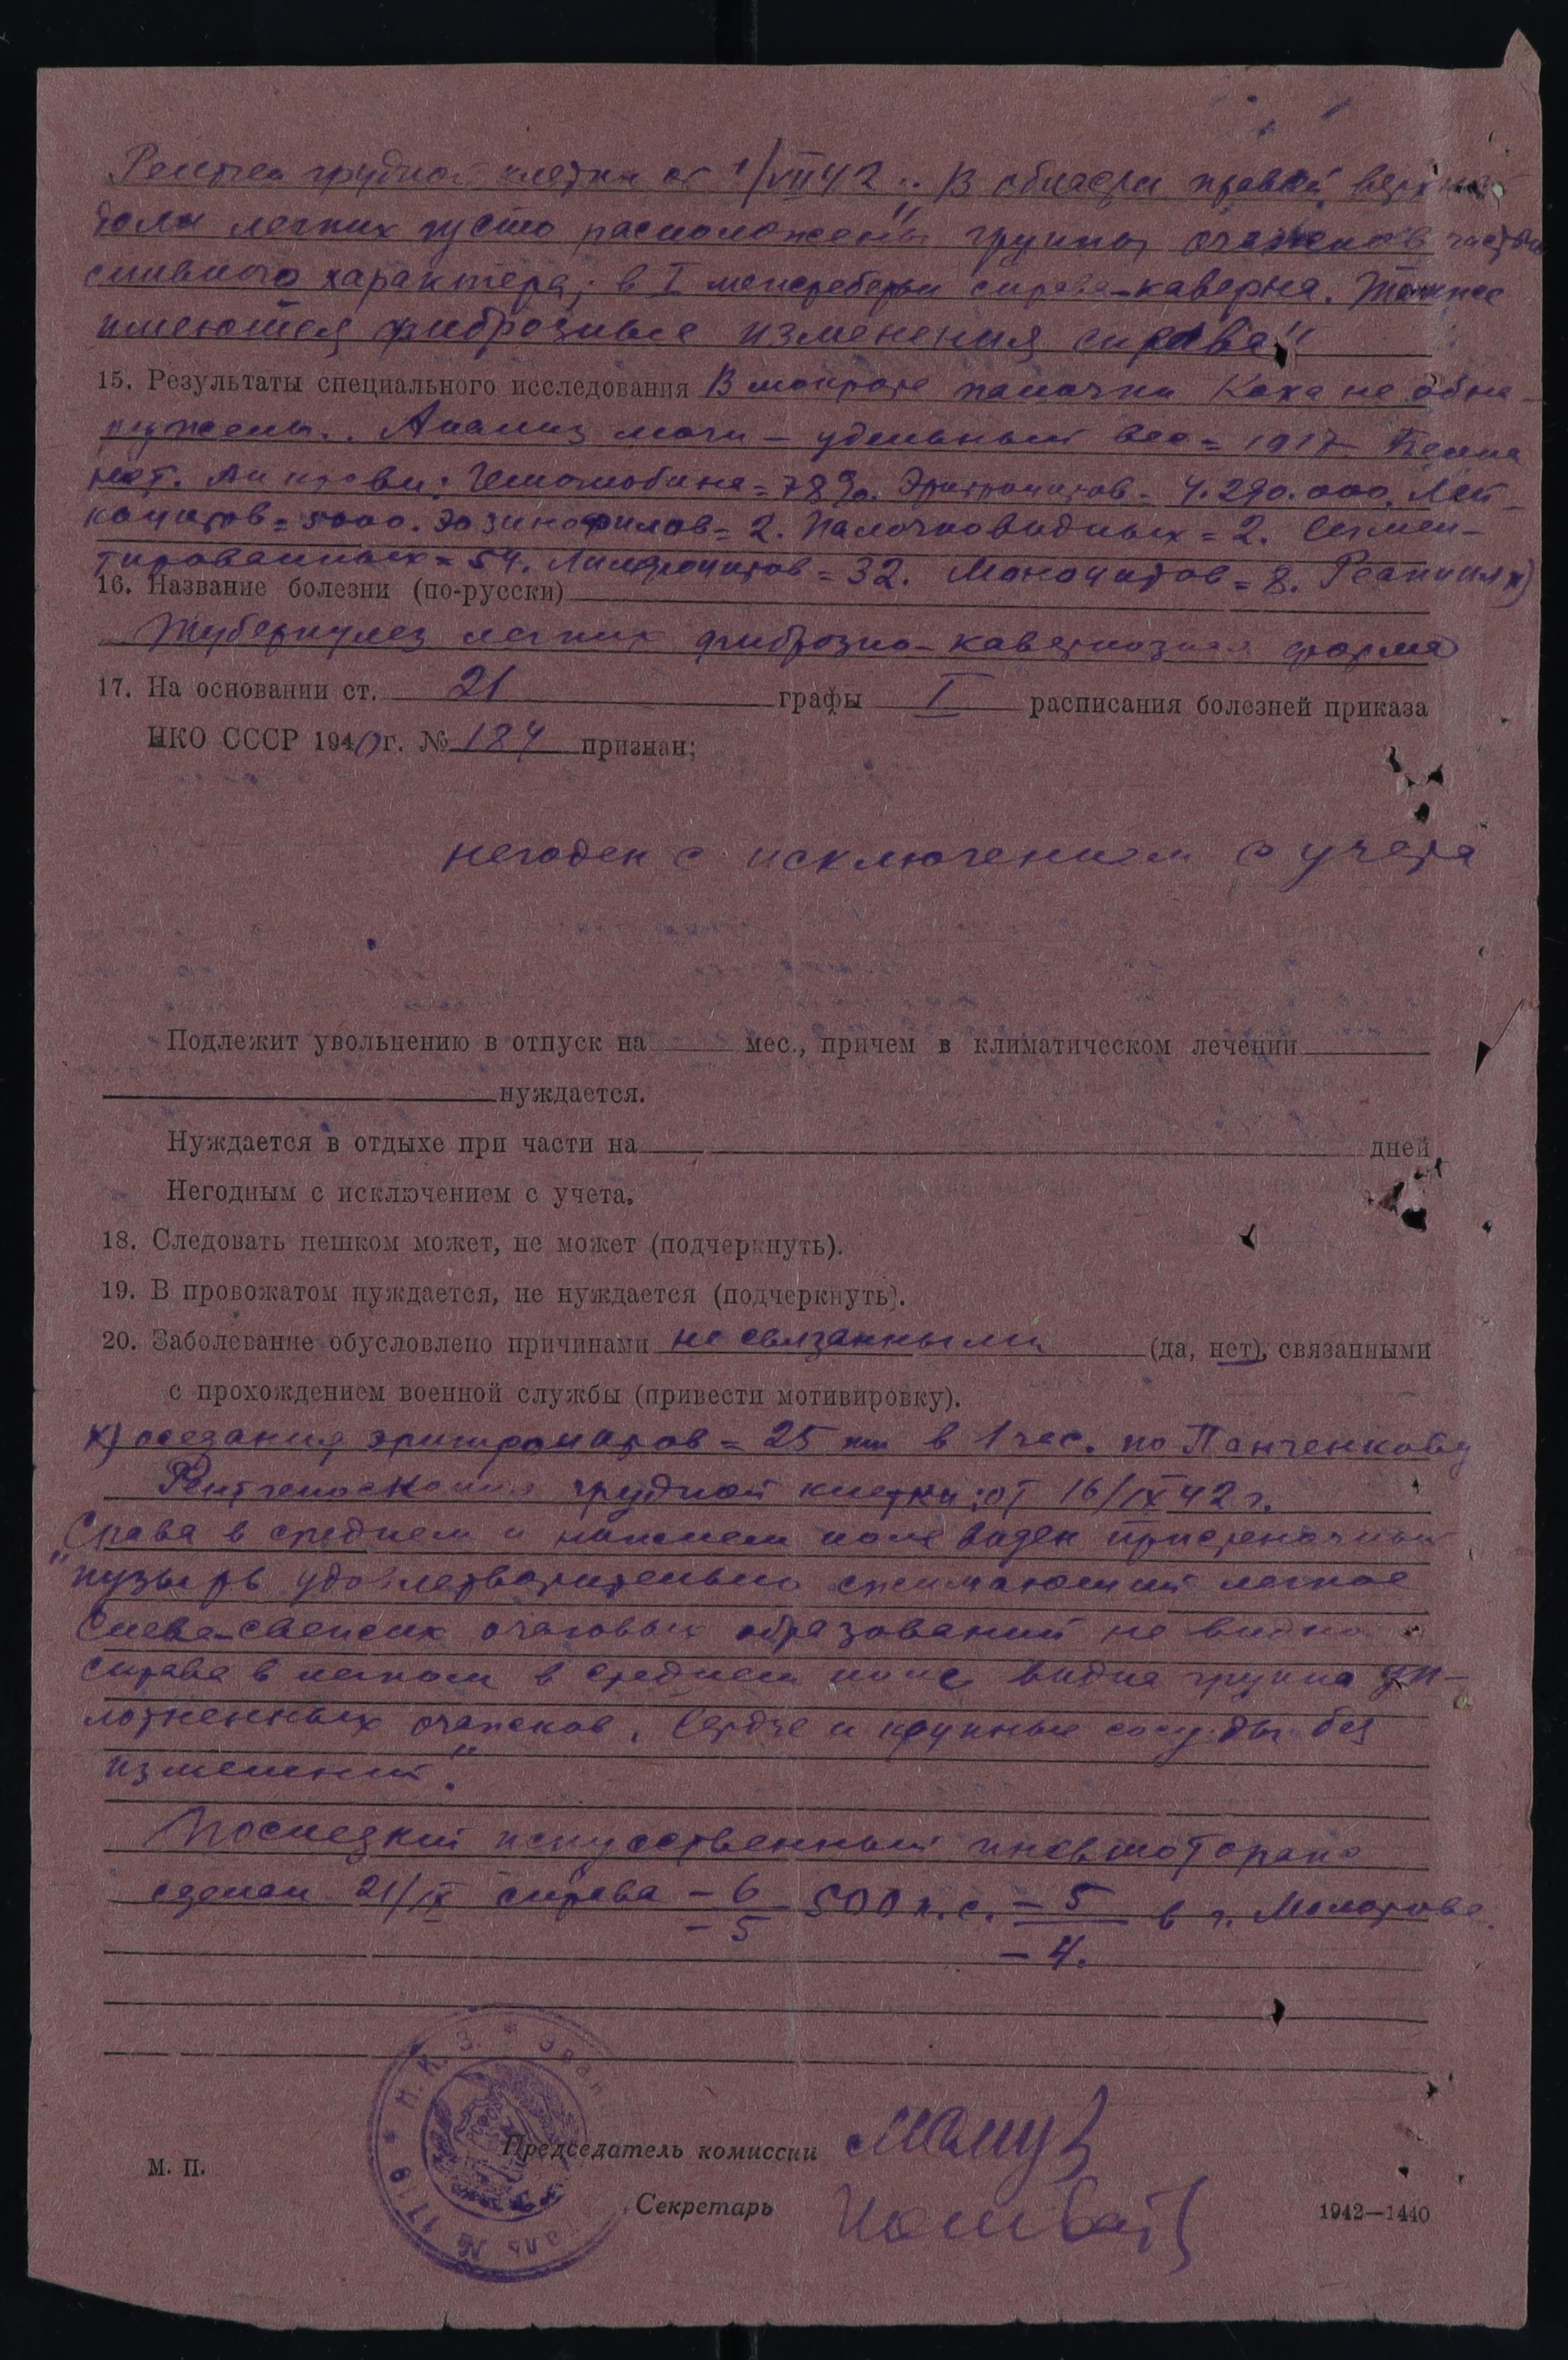 Рентген грудной клетки от 1/VII 42 : „В области правой верхней
доли легких густо расположены группы очажков часто
сливного характера; в I межреберьи справа - каверна. Также
имеются фиброзные изменения справа"
15. Результаты специального исследования В мокроте палочки Коха не обна-
ружены. Анализ мочи - удельный вес = 1017 Белка
нет. Ан крови: Гемоглобина = 78%. Эритроцитов = 4.290.000. Лей-
коцитов = 5000. Эозинофилов = 2. Палочковидных = 2. Сегмен-
тированных = 54. Лимфоцитов = 32. Моноцитов = 8. Реакция х)
16. Название болезни (по-русски)
Туберкулез легких фиброзно-кавернозная форма
17. На основании ст. 21 графы I расписания болезней приказа
НКО СССР 1940 г. № 184 признан;
негоден с исключением с учета
Подлежит увольнению в отпуск на мес., причем в климатическом лечении
нуждается.
Нуждается в отдыхе при части на дней
Негодным с исключением с учета.
18. Следовать пешком может, не может (подчеркнуть).
19. В провожатом нуждается, не нуждается (подчеркнуть).
20. Заболевание обусловлено причинами не связанными (да, нет), связанными
с прохождением военной службы (привести мотивировку).
х) оседания эритроцитов = 25 mm в 1 час. по Панченкову
Рентгеноскопия грудной клетки от 16/IX 42 г.
„Справа в среднем и нижнем поле виден пристеночный
пузырь удовлетворительно сжимающий легкое
Слева - свежих очаговых образований не видно
справа в легком в среднем поле видна группа уп-
лотненных очажков. Сердце и крупные сосуды без
изменений".
Последний искусственный пневмоторакс
сделан 21/IX справа -6/-5 500 к.с. -5/-4. в г. Молотове.
Н. К. З. * Эвак
№ 1710
М. П.
Председатель комиссии
Секретарь
1942—1440